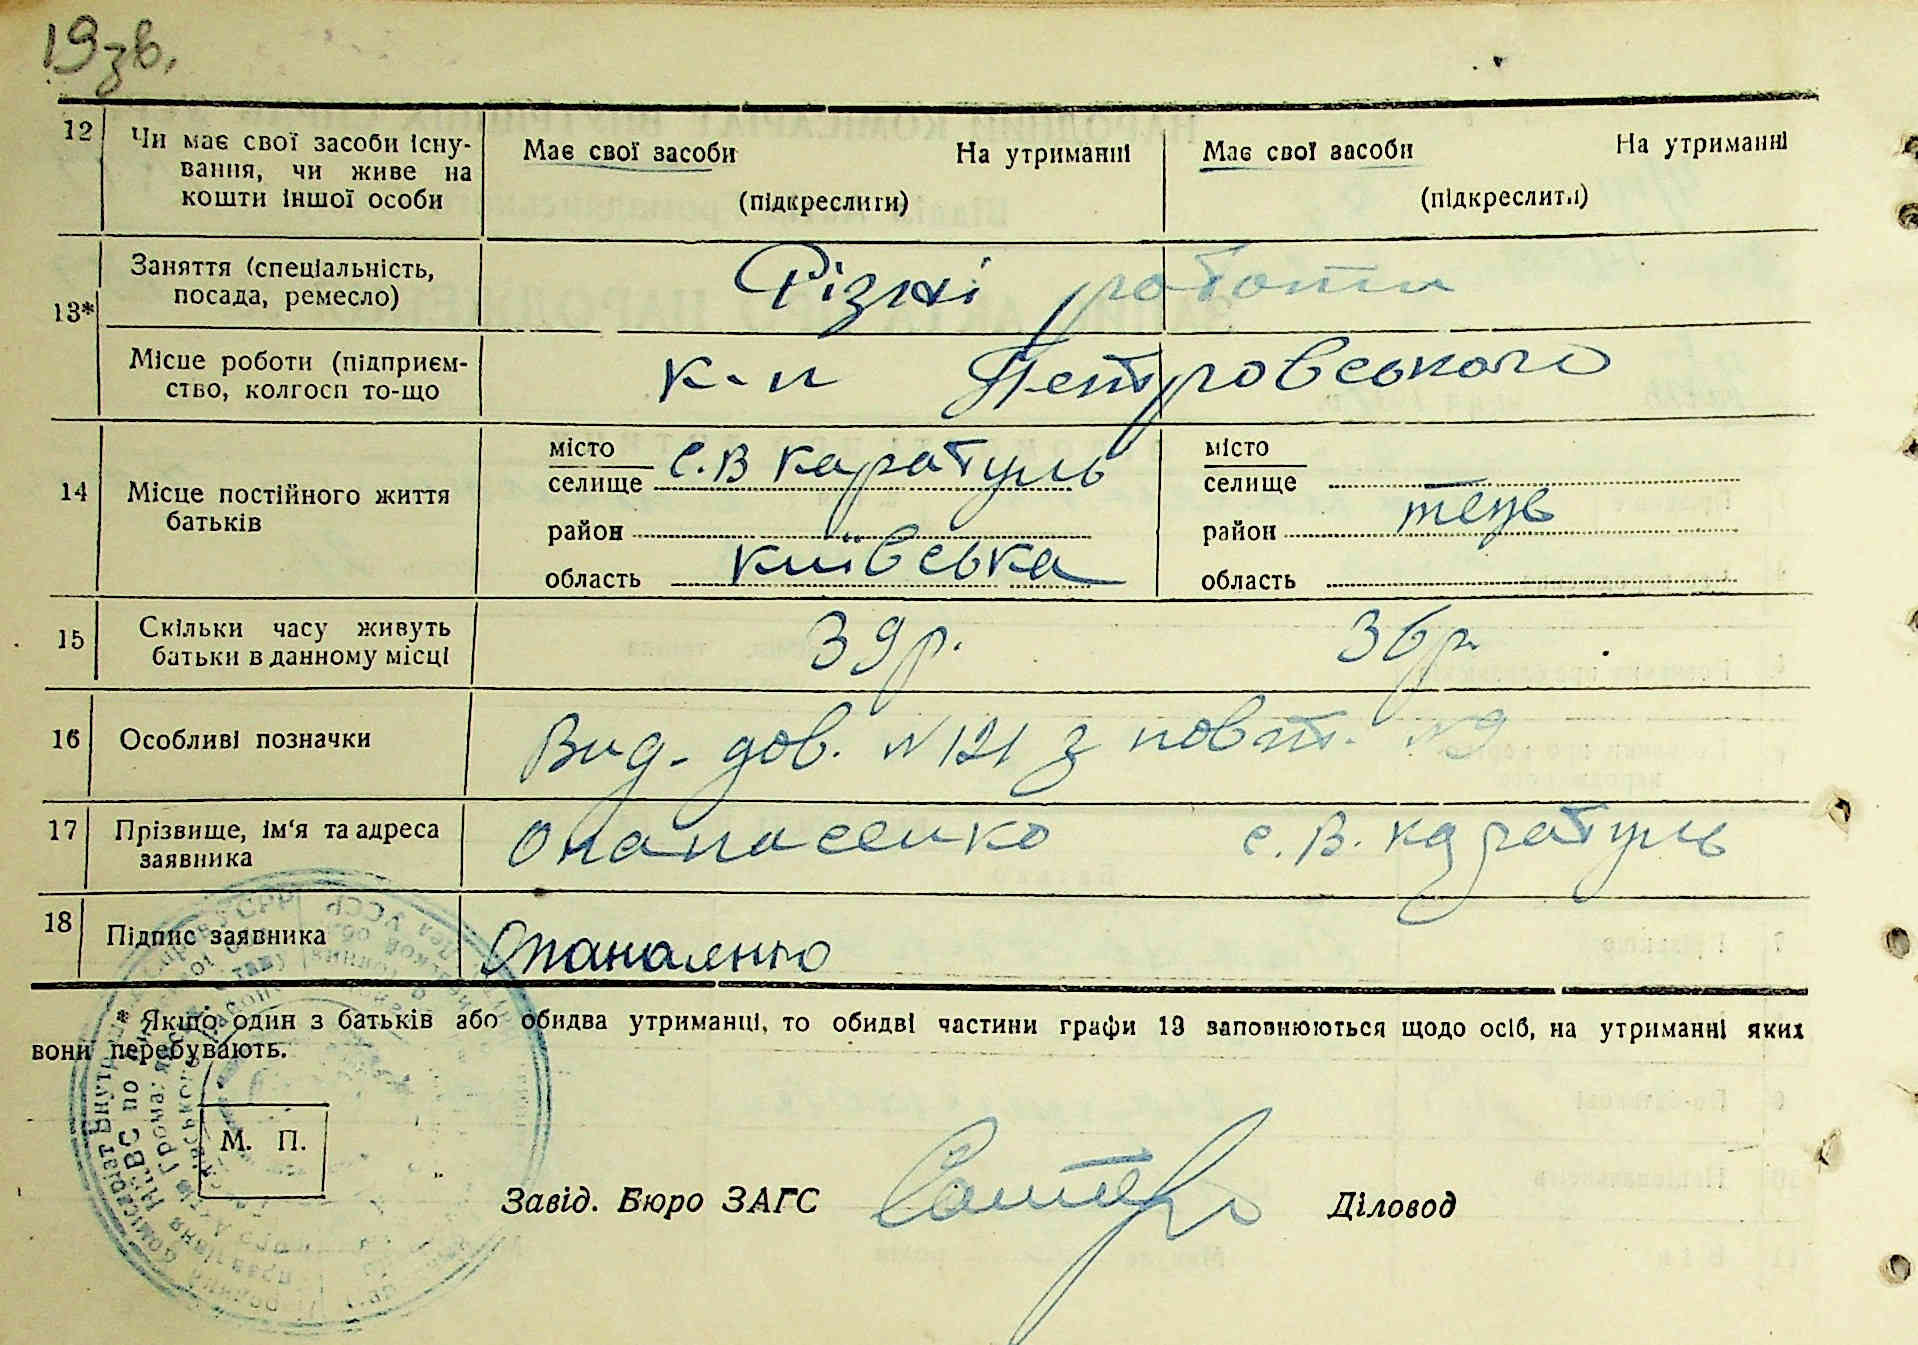 19 зв.
12 Чи має свої засоби існу- Має свої засоби На утриманні Має свої засоби На утриманні
вання, чи живе на
кошти іншої особи (підкреслити) (підкреслити)
13* Заняття (спеціальність, Різні роботи
посада, ремесло)
Місце роботи (підприєм- к-п Петровського
ство, колгосп то-що
14 Місце постійного життя батьків
місто с. В каратуль місто
селище селище
район район теж
область київська область
15 Скільки часу живуть 39 р. 36 р.
батьки в данному місці
16 Особливі позначки Вид. дов. №121 з повт. №9
17 Прізвище, ім'я та адреса Опанасенко с. В. каратуль
заявника
18 Підпис заявника Опанасенко
* Якщо один з батьків або обидва утриманці, то обидві частини графи 13 заповнюються щодо осіб, на утриманні яких
вони перебувають.
М. П.
Завід. Бюро ЗАГС Діловод